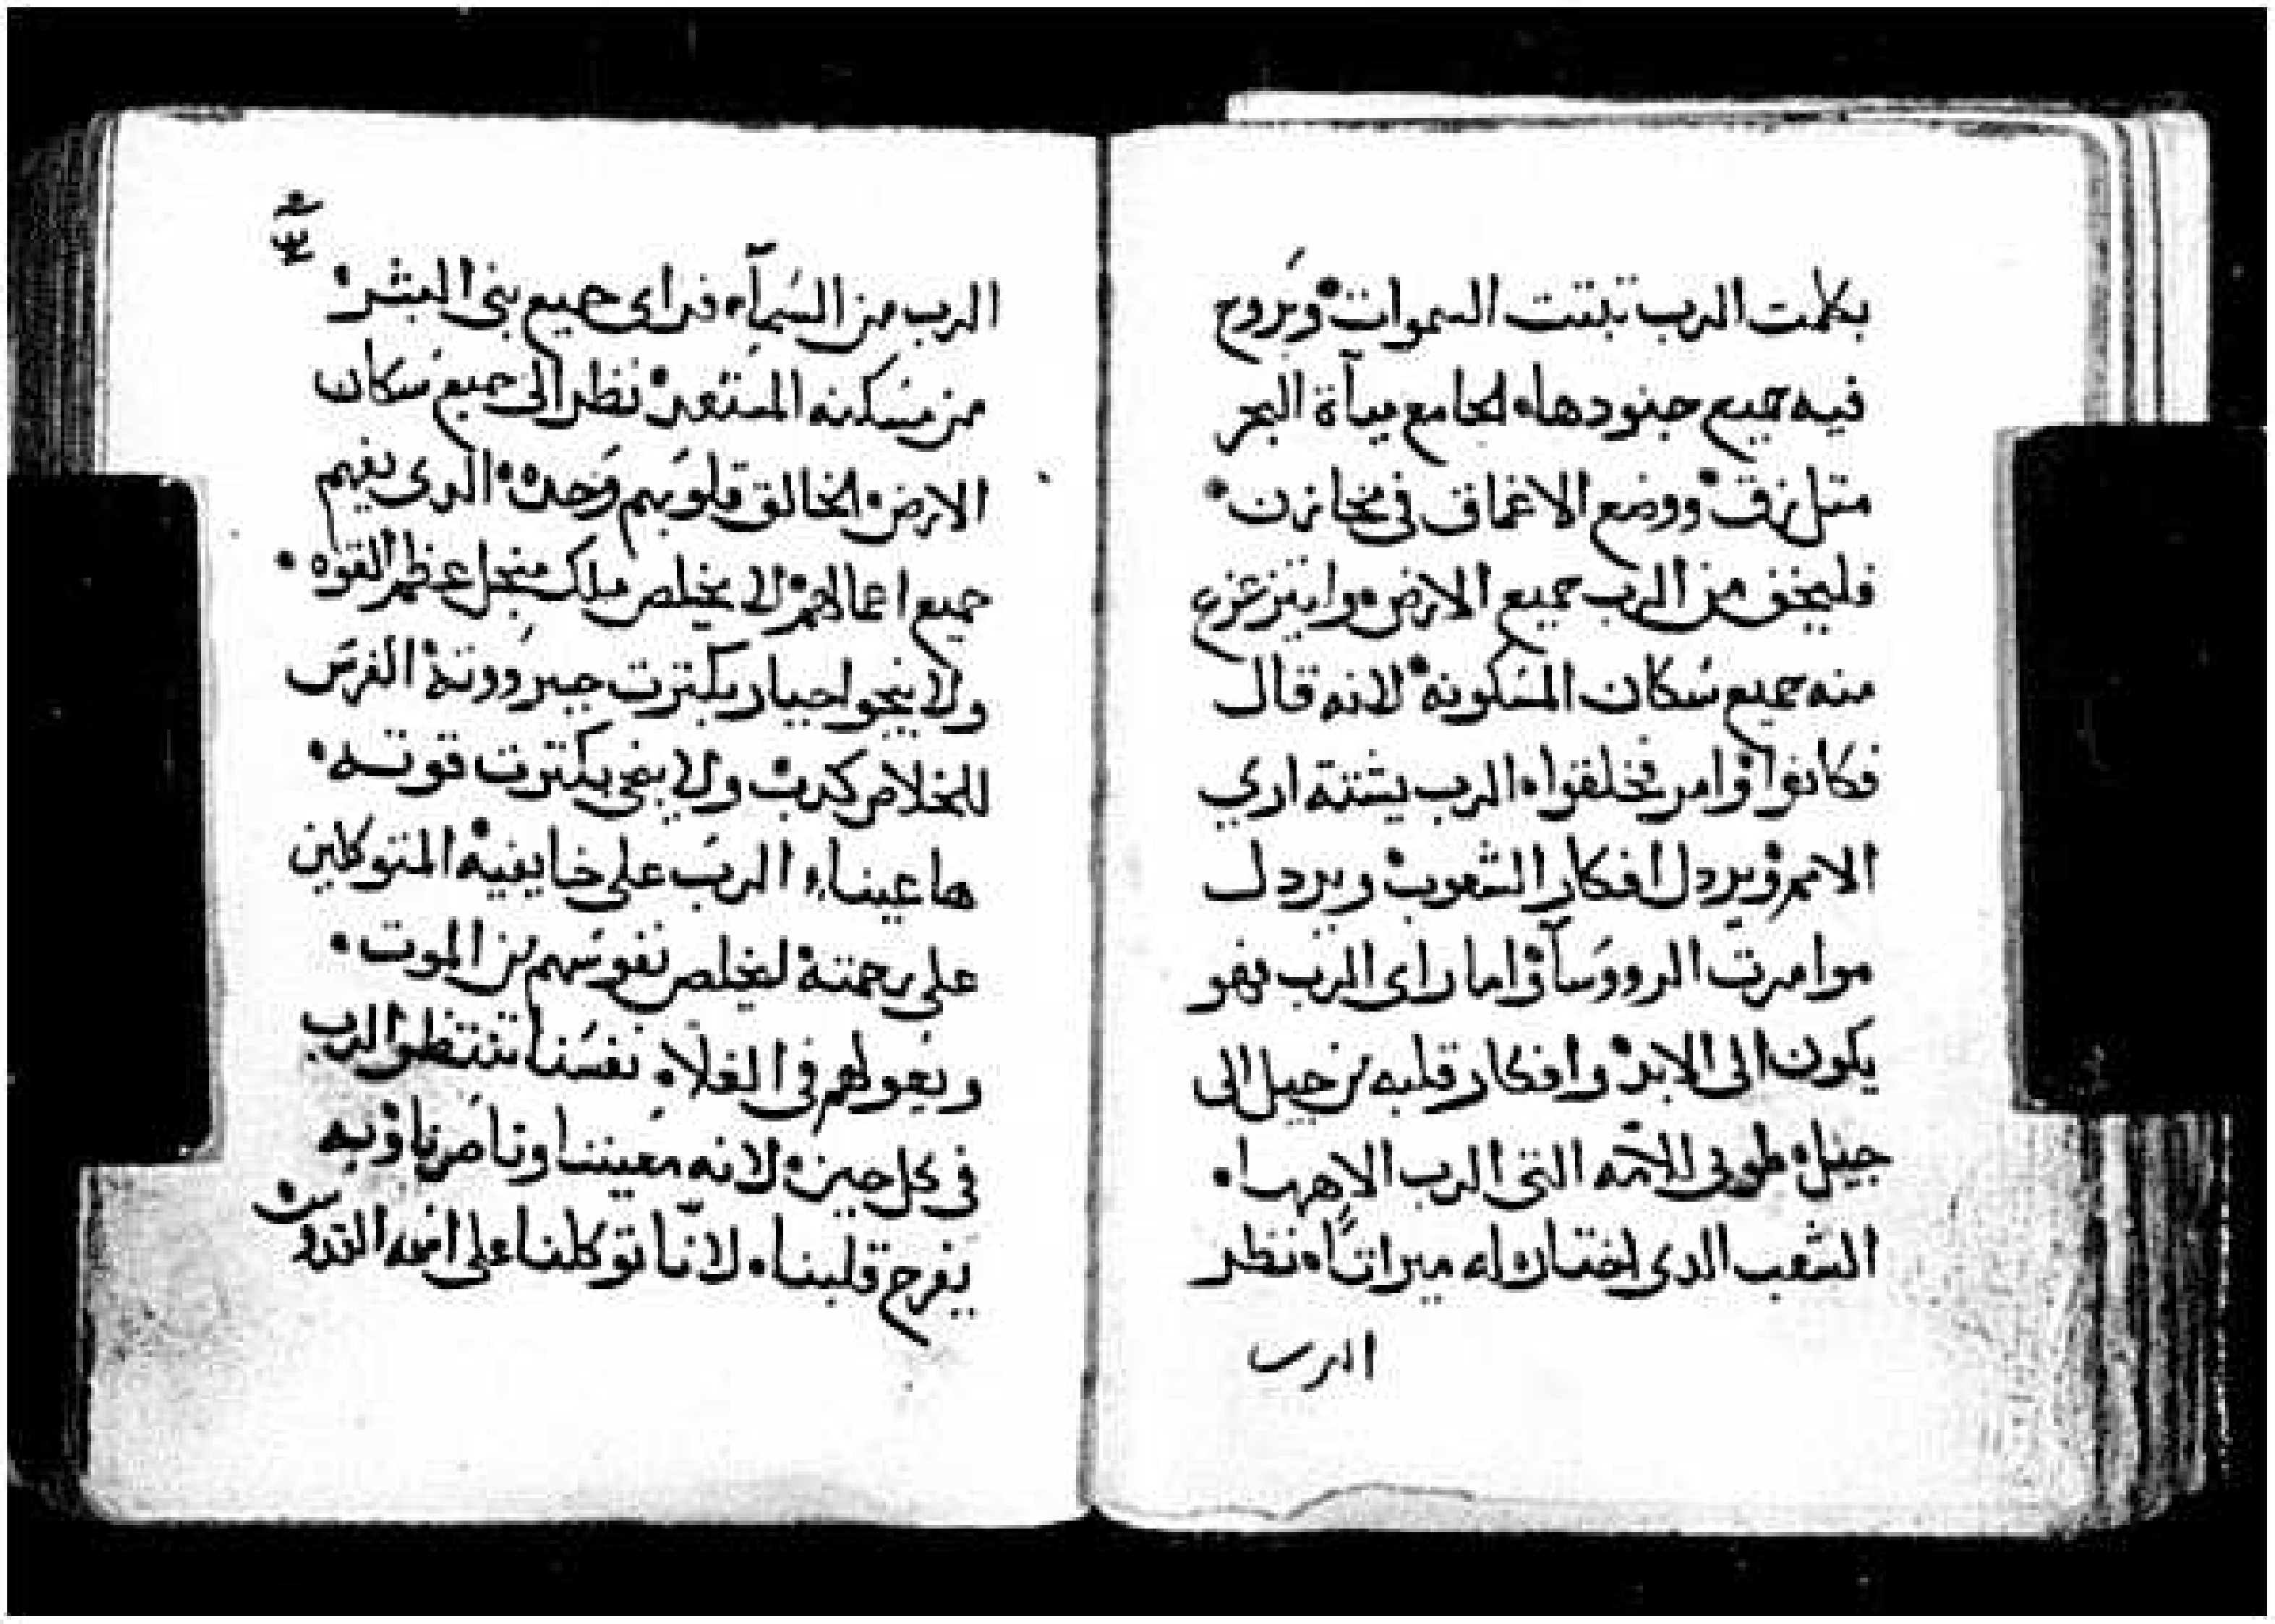 بكلمت الرب تبتت السموات • وبروح
فيه جميع جنودها • الجامع ميآة البحر
متل زق • ووضع الاعماق في مخازن •
فليخف من الرب جميع الارض • وليتزعزع
منه جميع سكان المسكونة • لانه قال
فكانوا • وامر فخلقوا • الرب يشتته اري
الامم • ويردل افكار الشعوب • ويردل
موامرت الرووسآ • واما راى الرب فهو
يكون الى الابد • وافكار قلبه من جيل الى
جيل • طوبى للامّه التى الرب الاهها •
الشعب الدى اختاره له ميراتًا • نظر
الرب
الرب من السمآء فراى جميع بنى البشر •
من مسكنه المستعد • نظر الى جميع سكان
الارض • الخالق قلوبهم وحده • الدى يفهم
جميع اعمالهم • لا يخلص ملك من اجل عظم القوه •
ولا ينجوا جبار بكترت جبرووته • الفرس
للخلاص كدب • ولا ينجى بكترت قوته •
ها عينا الرب على خايفيه • المتوكلين
على رحمته • ليخلص نفوسهم من الموت •
ويعولهم فى الغلاء • نفسنا تنتظر الرب
فى كل حين • لانه معيننا وناصرنا • وبه
يفرح قلبنا • لانّا توكلنا على اسمه القدوس •